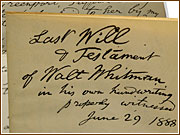 to her by my
Last Will
& Testament
of Walt Whitman
in his own handwriting
properly witnessed
June 29 1888